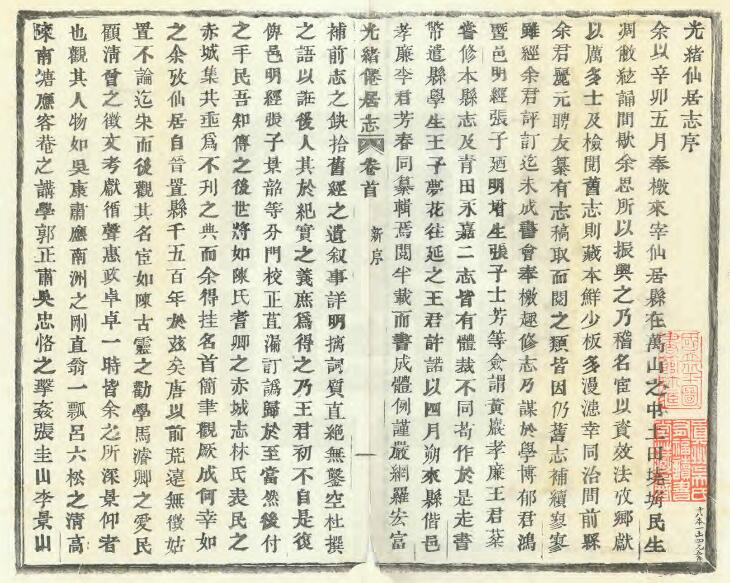 光緒仙居志序
余以辛卯五月奉檄來宰仙居縣在萬山之中土田塉埆民生
凋敝絃誦間歇余思所以振興之乃稽名宦以資效法攷鄉獻
以厲多士及檢閱舊志則藏本鮮少板多漫漶幸同治間前縣
余君麗元聘友纂有志稿取而閱之類皆因仍舊志補續寥寥
雖經余君評訂迄未成書會奉檄趣修志乃謀於學博郁君鴻
暨邑明經張子廼明增生張子士芳等僉謂黃巖孝廉王君棻
嘗修本縣志及青田永嘉二志皆有體裁不同苟作於是走書
幣遣縣學生王子夢花往延之王君許諾以四月朔來縣偕邑
孝廉李君芳春同纂輯焉閱半載而書成體例謹嚴網羅宏富
光緒僊居志
卷首
新序
一
補前志之缺拾舊經之遺敘事詳明摛詞質直絶無鑿空杜撰
之語以誑後人其於紀實之義庶爲得之乃王君初不自是復
俾邑明經張子景韶等分門校正苴漏訂譌歸於至當然後付
之手民吾知傳之後世將如陳氏耆卿之赤城志林氏表民之
赤城集共垂爲不刊之典而余得挂名首簡聿觀厥成何幸如
之余攷仙居自晉置縣千五百年於兹矣唐以前荒遠無徵姑
置不論迄宋而後觀其名宦如陳古靈之勸學馬濬卿之愛民
顧清曾之徵文考獻循聲惠政卓卓一時皆余之所深景仰者
也觀其人物如吳康肅應南洲之剛直翁一瓢呂六松之清高
陳南塘應客菴之講學郭正肅吳忠恪之擊姦張圭山李景山